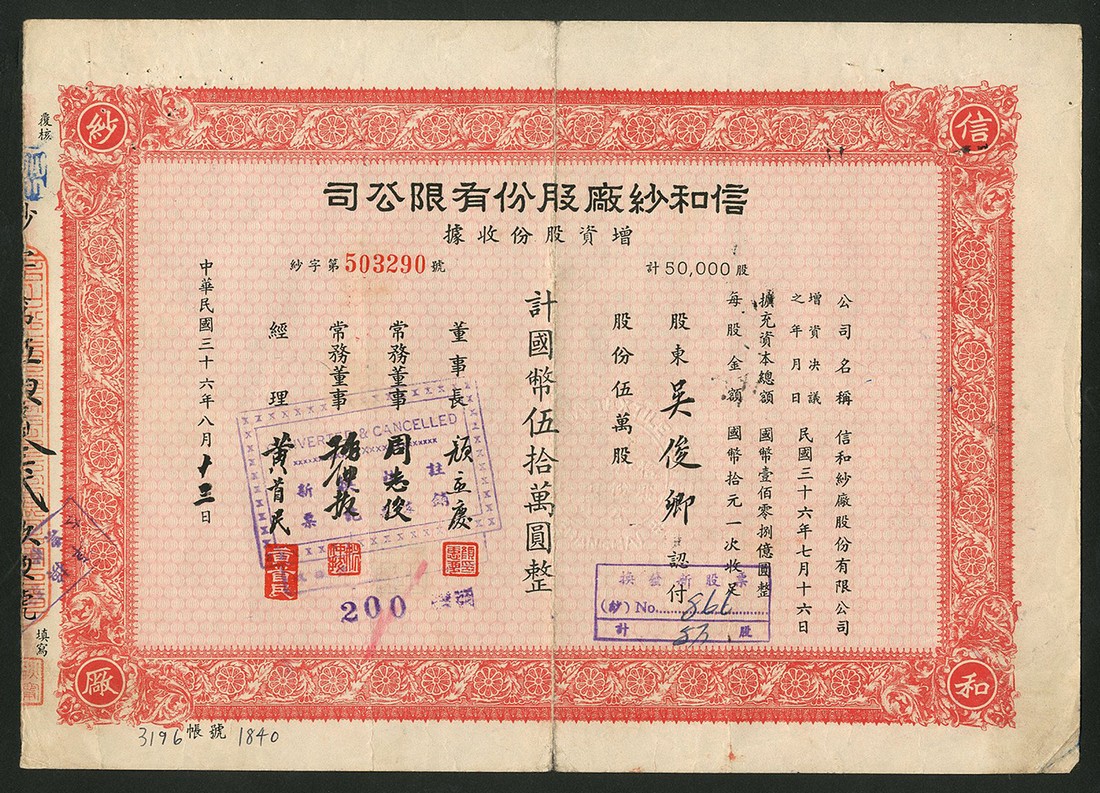 信和紗廠股份有限公司
增資股份收據
計50,000股
紗字第503290號
公司名稱 信和紗廠股份有限公司
增資決議之年月日 民國三十六年七月十六日
擴充資本總額 國幣壹佰零捌億圓整
每股金額 國幣拾元一次收足
股東 吳俊卿 認付
股份伍萬股
計國幣伍拾萬圓整
董事長 顏立慶
常務董事 周志俊
常務董事
經理 黃首民
中華民國三十六年八月十三日
信
和
紗
廠
覆核
填寫
& CANCELLED
註銷
新票
200
換發新股票
(紗)No.
計 股
3196 帳號 1840